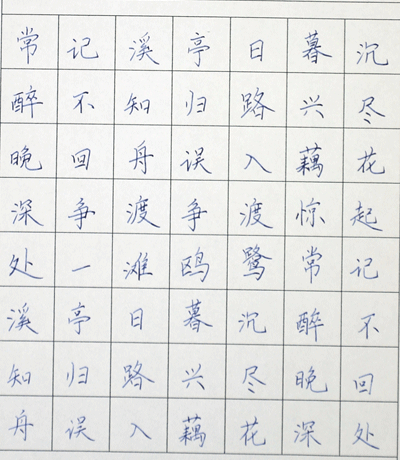 常记溪亭日暮沉
醉不知归路兴尽
晚回舟误入藕花
深争渡争渡惊起
处一滩鸥鹭常记
溪亭日暮沉醉不
知归路兴尽晚回
舟误入藕花深处